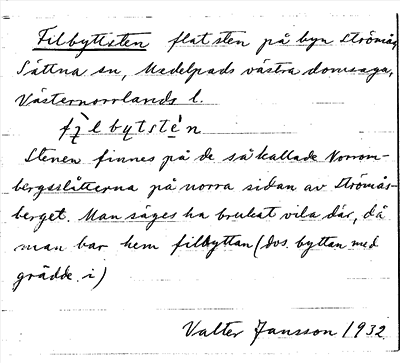 Filbyttsten flat sten på byn Strömås,
Sättna sn, Medelpads västra domsaga,
Västernorrlands l.
fìlbytsté̀n
Stenen finnes på de så kallade Norrom-
bergsslåtterna på norra sidan av Strömås-
berget. Man säges ha brukat vila där, då
man bar hem filbyttan (dvs. byttan med
grädde i)
Valter Jansson 1932